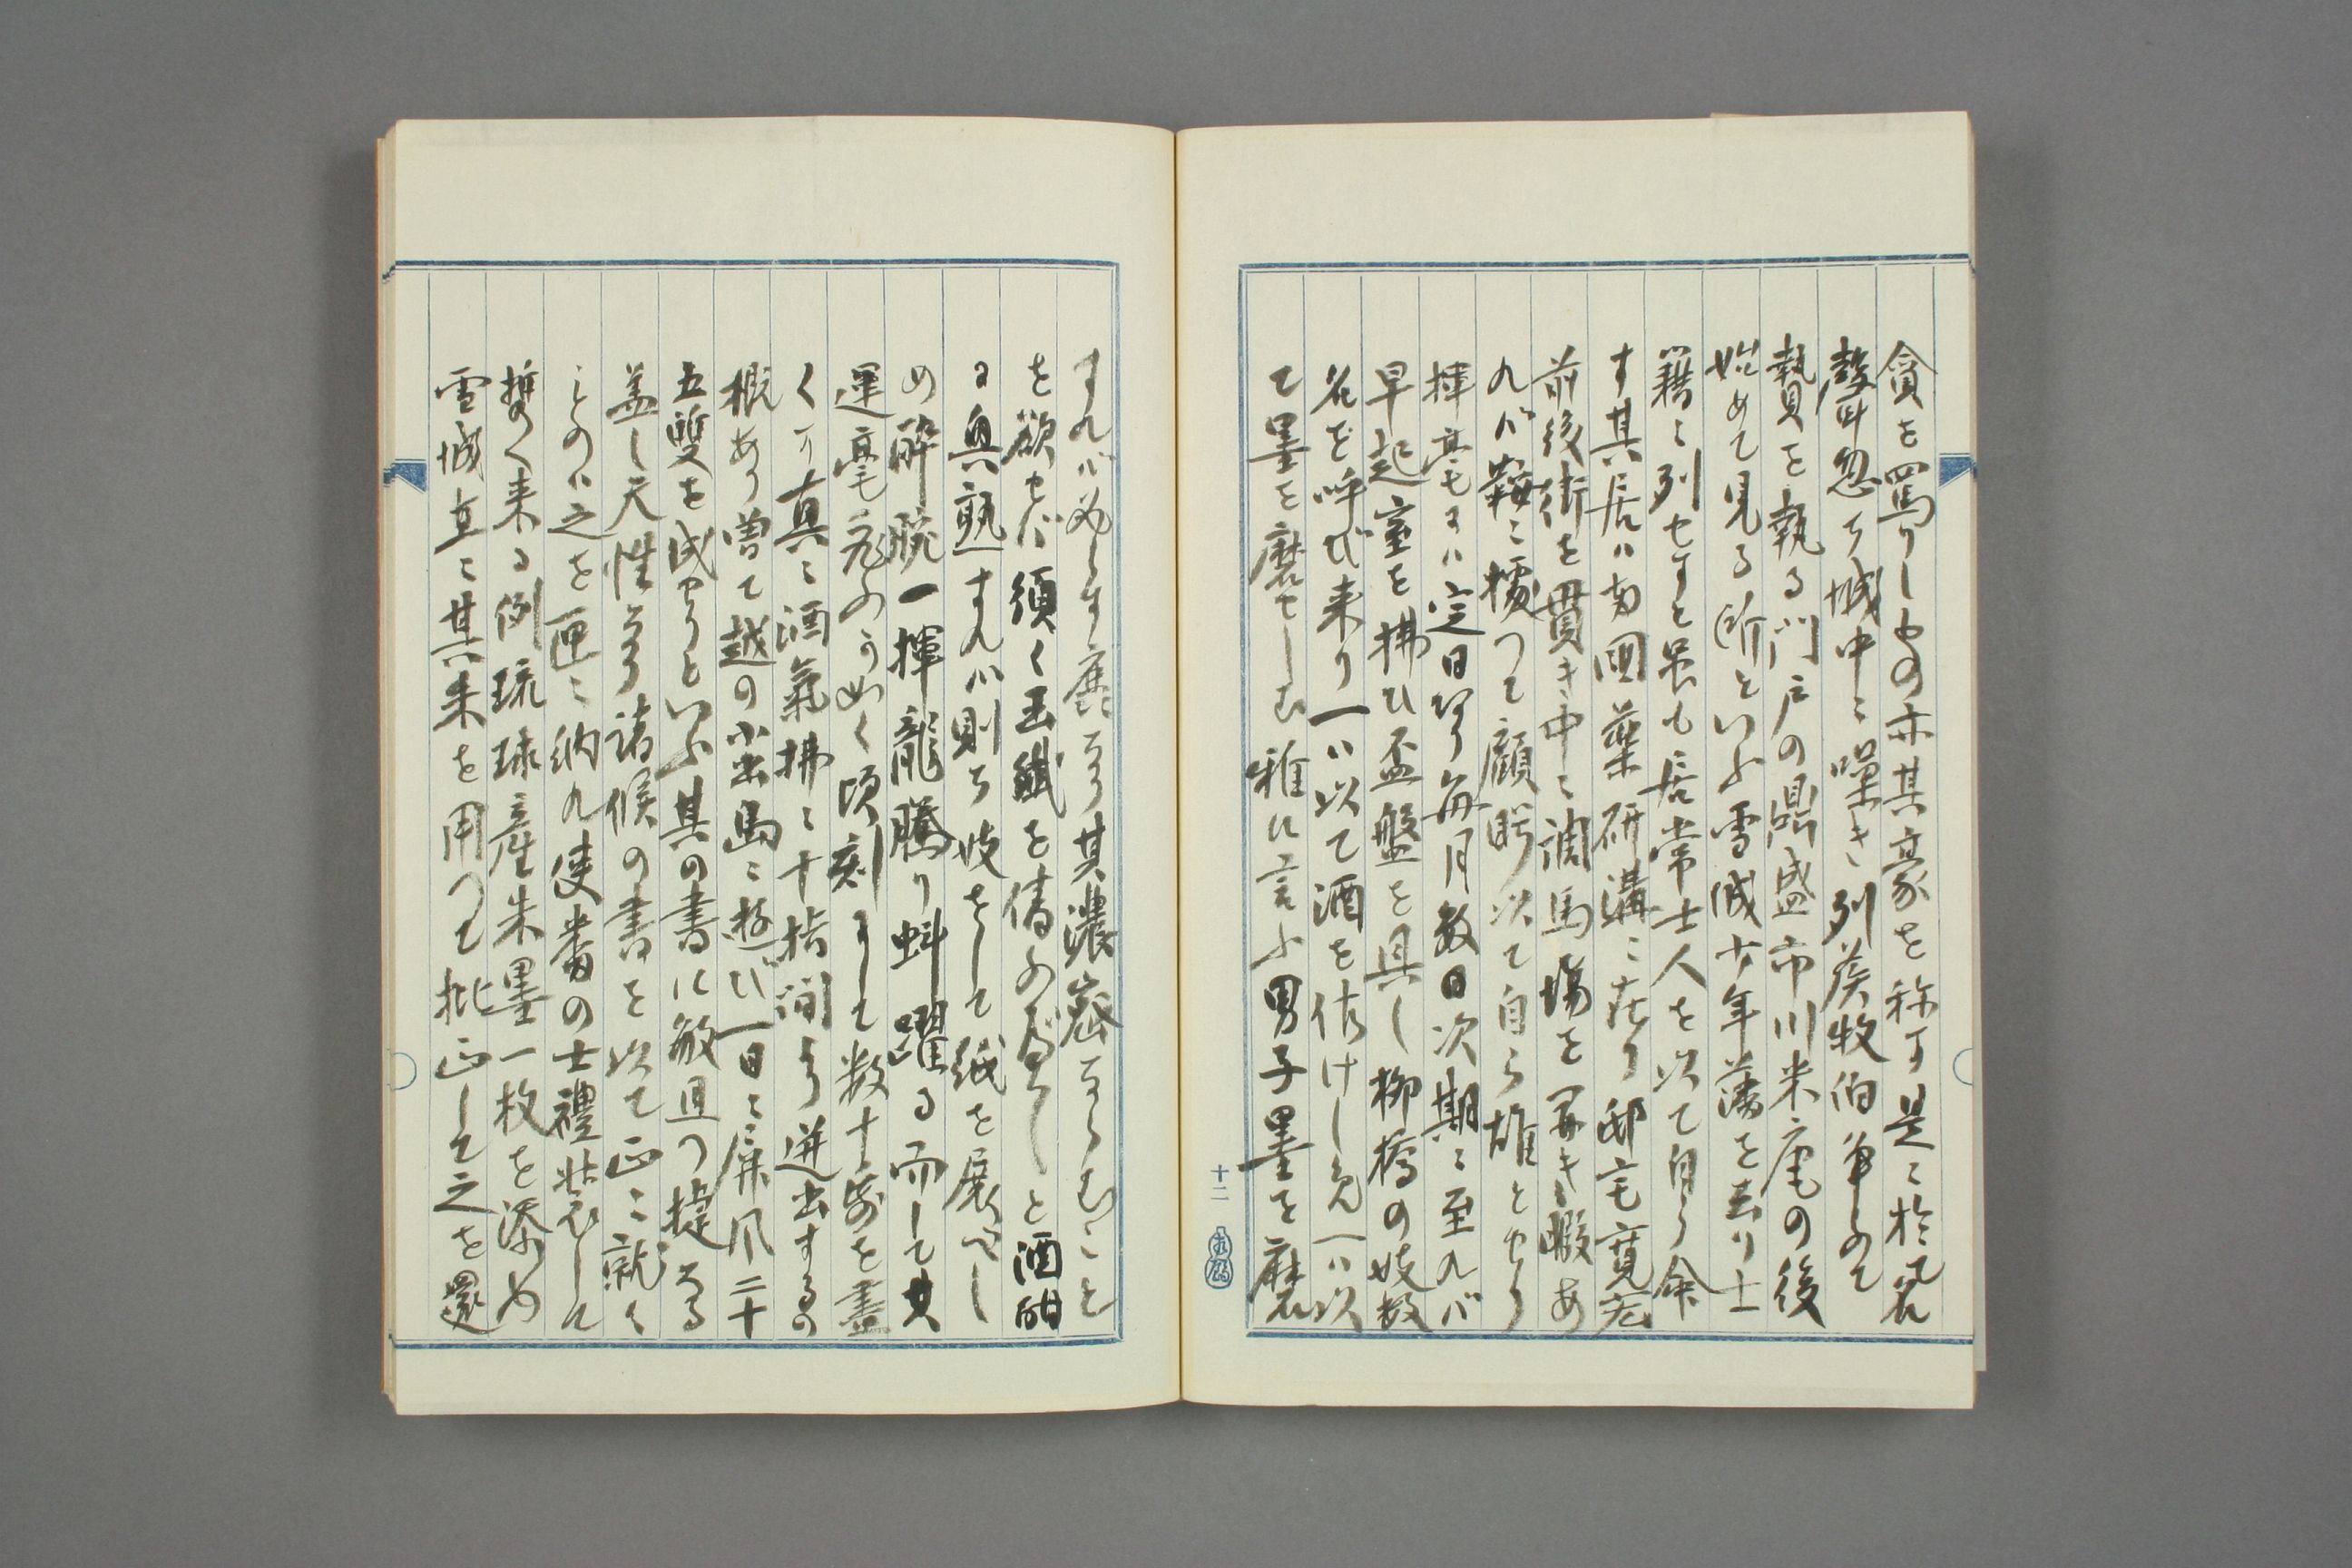 貪を罵りしもの亦其豪を称す是に於て名
聲忽ち城中に噪き列侯牧伯争ふて
贄を執る門戸の鼎盛市川米庵の後
始めて見る所といふ雪城少年藩を去り士
籍に列せすと虽も居常士人を以て自ら命
す其居ハ両国薬研溝に在り邸宅寛宏
前後街を貫き中に調馬場を開き暇あ
れバ鞍に據つて顧眄以て自ら雄とせり
揮毫すに定日あり毎月数日次期に至れバ
早起室を拂ひ盃盤を具し柳橋の妓数
名を呼び来り一ハ以て酒を佐けしめ一ハ以
て墨を磨せしむ雅に言ふ男子墨を磨
すれバ必らす麁なり其濃密ならむこと
を欲せバ須く玉繊を倩ふべしと酒酣
に興熟すれバ則ち妓をして紙を展べし
め酔腕一揮龍騰り蚪躍る而して其
運毫飛ふか如く頃刻にして数十幅を盡
くす真に酒氣拂に十指間より迸出するの
概あり曽て越の出馬に遊び一日に屏風二十
五雙を成せりといふ其の書に敏且つ捷なる
盖し天性なり諸侯の書を以て正に就く
ものハ之を匣に納れ使番の士禮装して
携へ来る例琉球産朱墨一枚を添ゆ
雪城直に其朱を用つて批正して之を還
十二